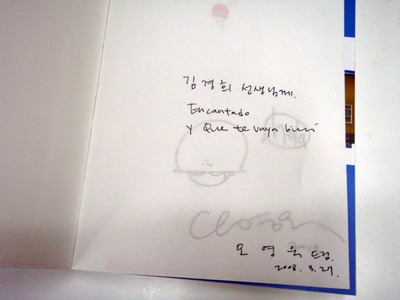 김경희 선생님께.
Encantado
y Que te vaya bien
오영욱 드림.
2008. 3. 27.